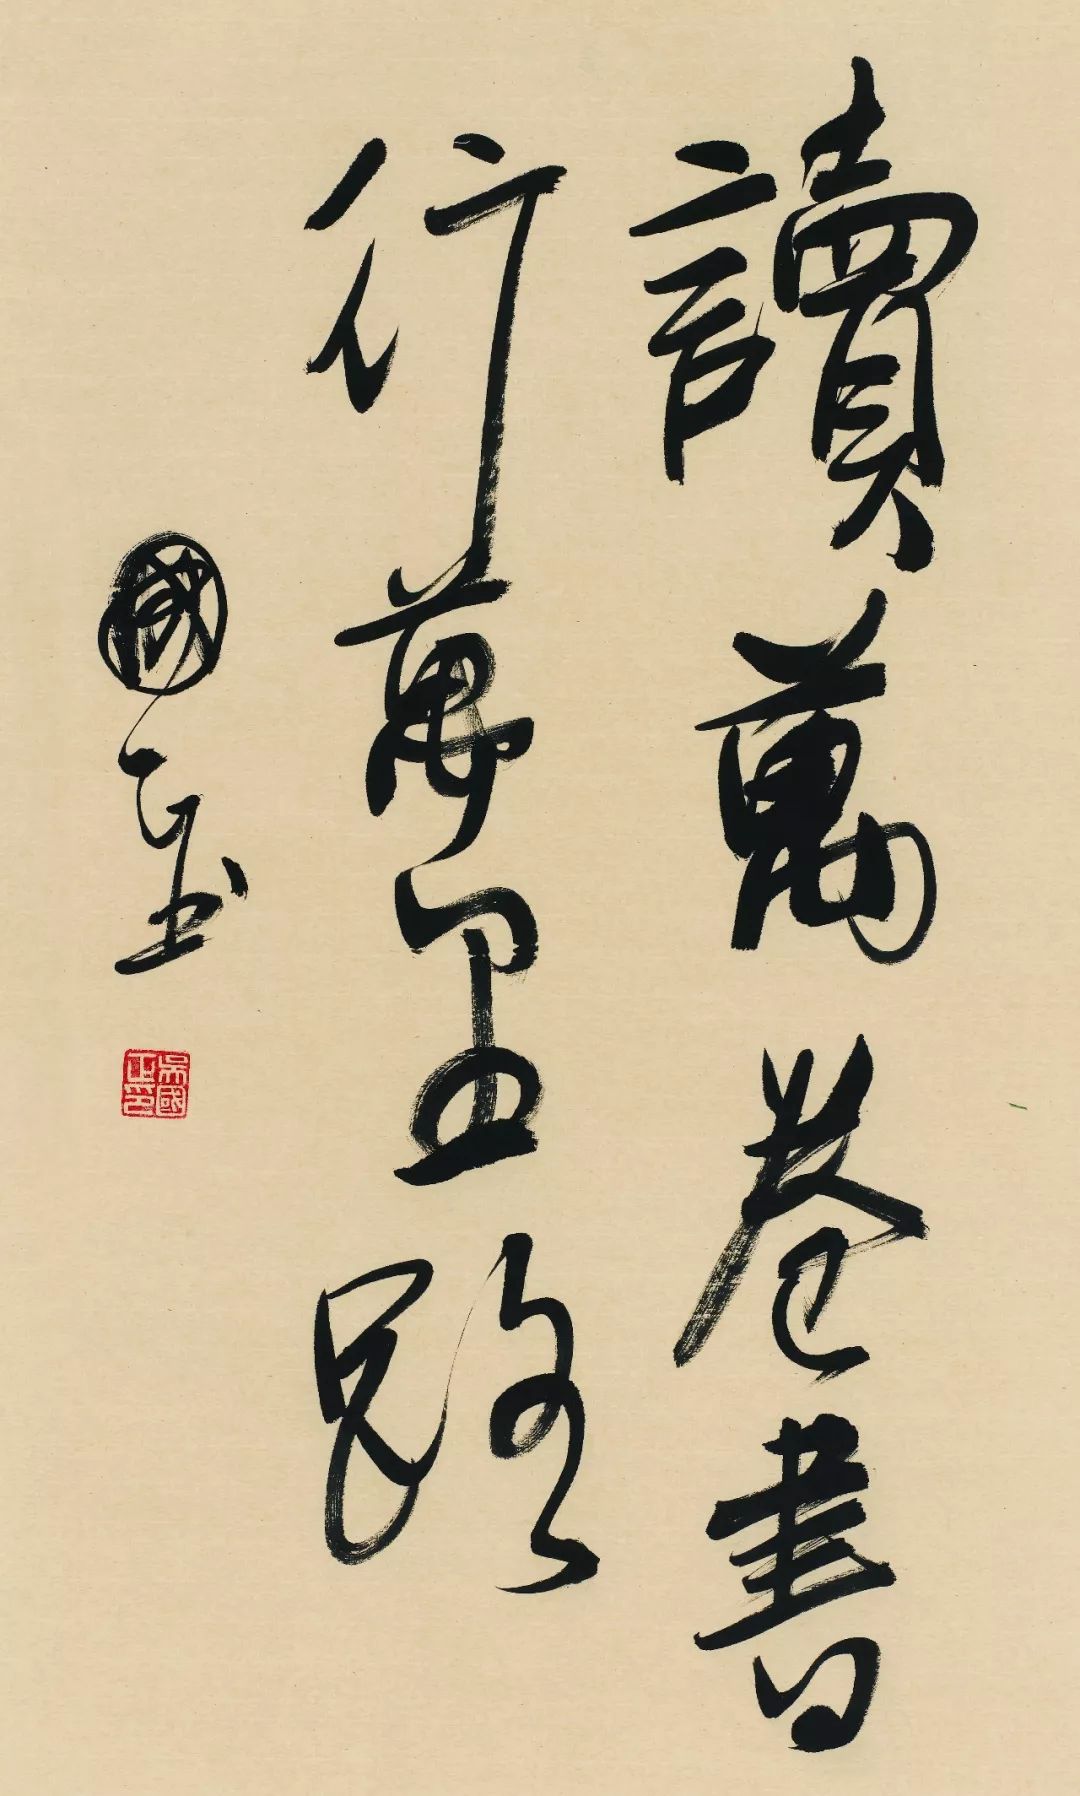 讀萬卷書
行萬里路
國
吳國正印